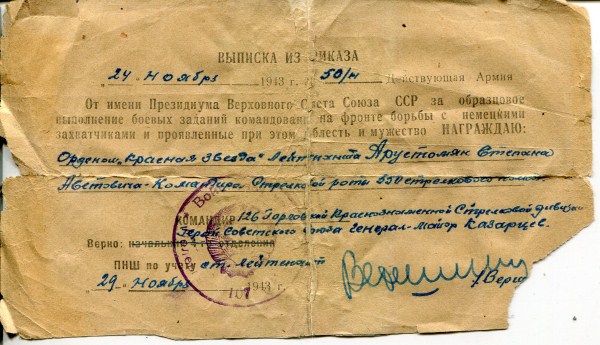 ВЫПИСКА ИЗ ПРИКАЗА
"24" Ноября 1943 г. № 50/н Действующая Армия
От имени Президиума Верховного Совета Союза ССР за образцовое
выполнение боевых заданий командования на фронте борьбы с немецкими
захватчиками и проявленные при этом доблесть и мужество НАГРАЖДАЮ:
Орденом "Красная Звезда" Лейтенанта Арустомян Степана
Аветовича - Командира Стрелковой роты 550 стрелкового полка
КОМАНДИР 126 Горловской Краснознаменной Стрелковой дивизии
Герой Советского Союза Генерал-Майор Казарцев.
Верно: начальник 4-го отделения
ПНШ по учету ст. лейтенант
/Верш
"29" Ноября 1943 г.